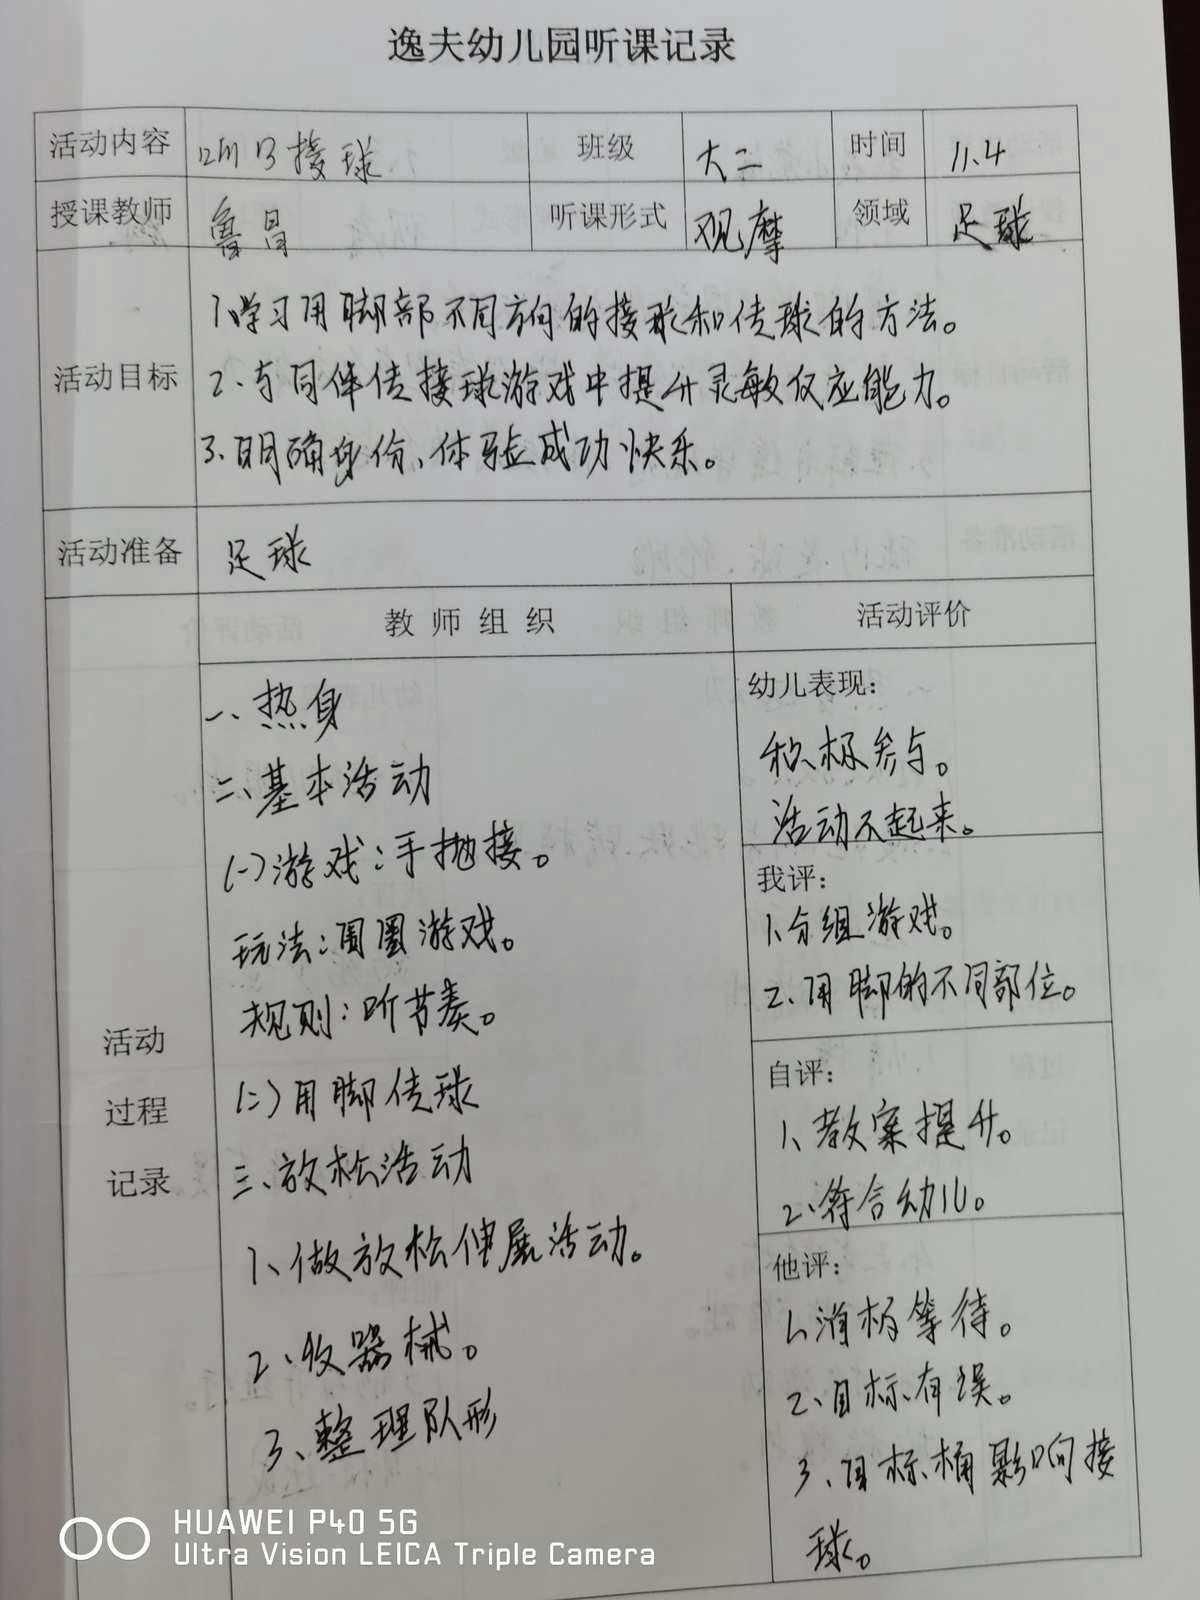 逸夫幼儿园听课记录
活动内容 接球 班级 大二 时间 11.4
授课教师 鲁昌 听课形式 观摩 领域 足球
活动目标
1、学习用脚部不同方向的接球和传球的方法。
2、与同伴传接球游戏中提升灵敏仅应能力。
3、明确身份、体验成功快乐。
活动准备 足球
教师组织 活动评价
活动
过程
记录
一、热身
二、基本活动
(一)游戏:手抛接。
玩法:围圈游戏。
规则:听节奏。
(二)用脚传球
三、放松活动
1、做放松伸展活动。
2、收器械。
3、整理队形
幼儿表现:
积极参与。
活动不起来。
我评:
1、分组游戏。
2、用脚的不同部位。
自评:
1、教案提升。
2、符合幼儿。
他评:
1、消极等待。
2、目标有误。
3、目标桶影响接
球。
HUAWEI P40 5G
Ultra Vision LEICA Triple Camera